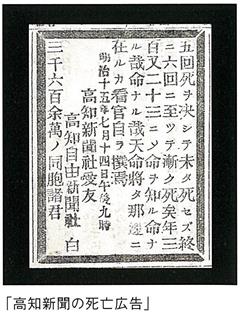 五回死ヲ決シテ未タ死セズ終
ニ六回ニ至ツテ漸ク死矣年三
百又二十三ニ〆命ヲ知ル命ナ
ル哉命ナル哉天命將タ那邊ニ
在ルカ看官自ラ撰焉
明治十五年七月十四日午後九時
高知新聞社愛友
高知自由新聞社 白
三千六百余萬ノ同胞諸君
「高知新聞の死亡広告」